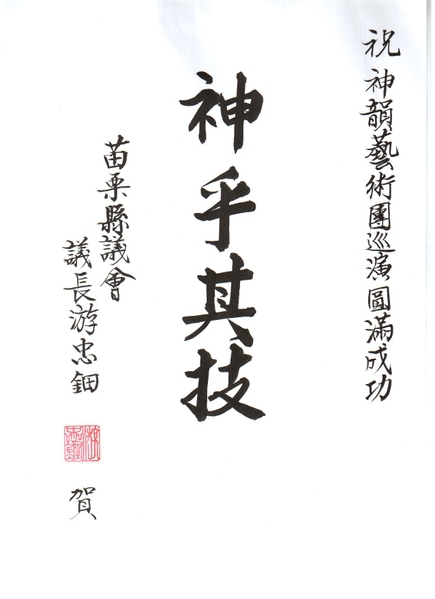 祝神韻藝術團巡演圓滿成功
神乎其技
苗栗縣議會
議長游忠鈿
賀